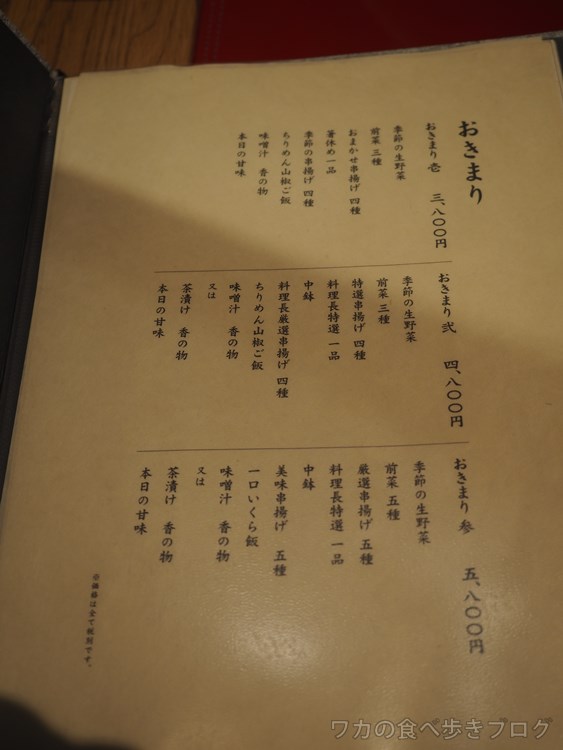 おきまり
おきまり 壱 三、八〇〇円
季節の生野菜
前菜 三種
おまかせ串揚げ 四種
箸休め 一品
季節の串揚げ 四種
ちりめん山椒ご飯
味噌汁 香の物
本日の甘味
おきまり 弐 四、八〇〇円
季節の生野菜
前菜 三種
特選串揚げ 四種
料理長特選 一品
中鉢
料理長厳選串揚げ 四種
ちりめん山椒ご飯
味噌汁 香の物
又は
茶漬け 香の物
本日の甘味
おきまり 参 五、八〇〇円
季節の生野菜
前菜 五種
厳選串揚げ 五種
料理長特選 一品
中鉢
美味串揚げ 五種
一口いくら飯
味噌汁 香の物
又は
茶漬け 香の物
本日の甘味
◎価格は全て税別です。
ワカの食べ歩きブログ